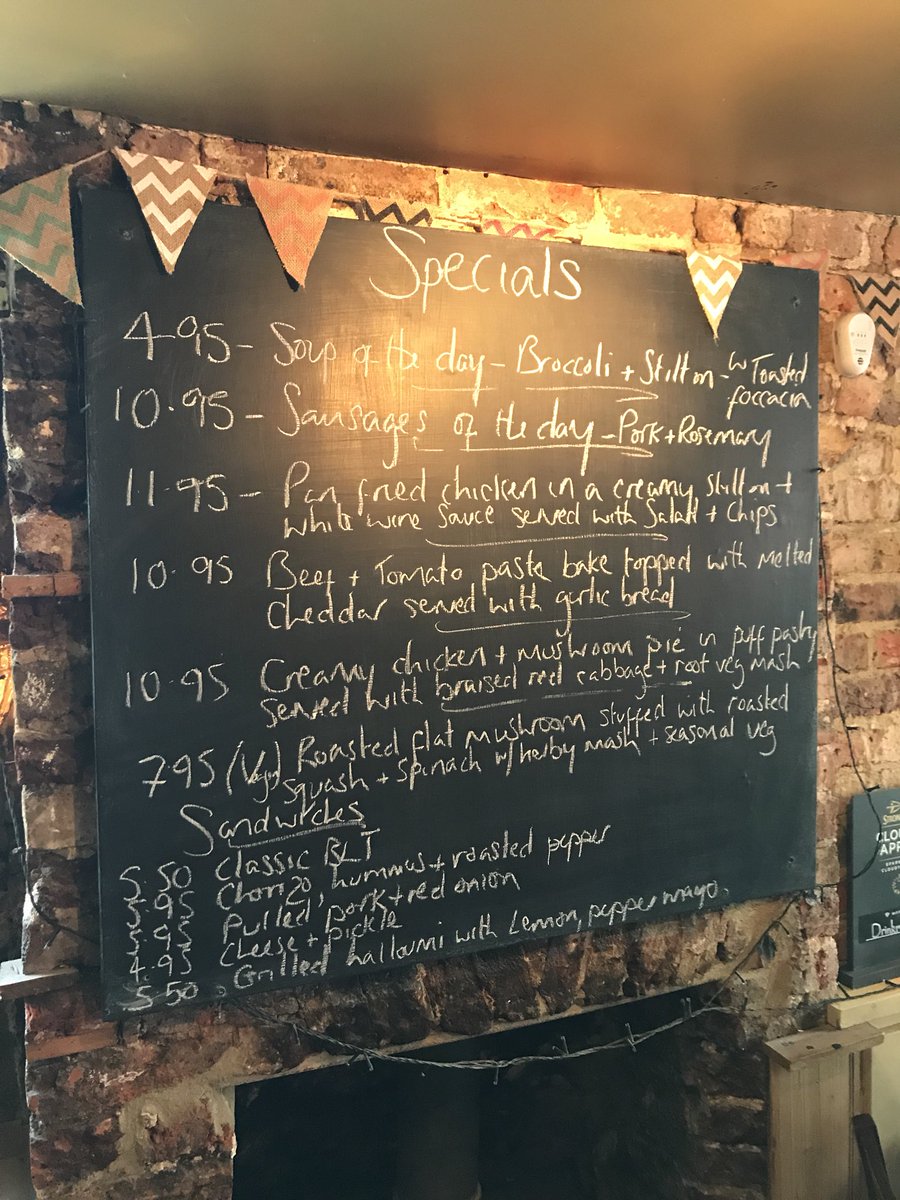 Specials
4.95 - Soup of the day - Broccoli + Stilton - w Toasted
foccacia
10.95 - Sausages of the day - Pork + Rosemary
11.95 - Pan fried chicken in a creamy stilton +
white wine sauce served with Salad + Chips
10.95 Beef + Tomato paste bake topped with melted
Cheddar served with garlic bread
10.95 Creamy chicken + mushroom pie in puff pastry
served with braised red cabbage + root veg mash
7.95 (Veg) Roasted flat mushroom stuffed with roasted
squash + spinach w/ herby mash + seasonal veg
Sandwiches
5.50 Classic BLT
5.95 Chorizo, hummus + roasted pepper
5.95 Pulled pork + red onion
4.95 Cheese + pickle
5.50 Grilled halloumi with Lemon, pepper mayo.